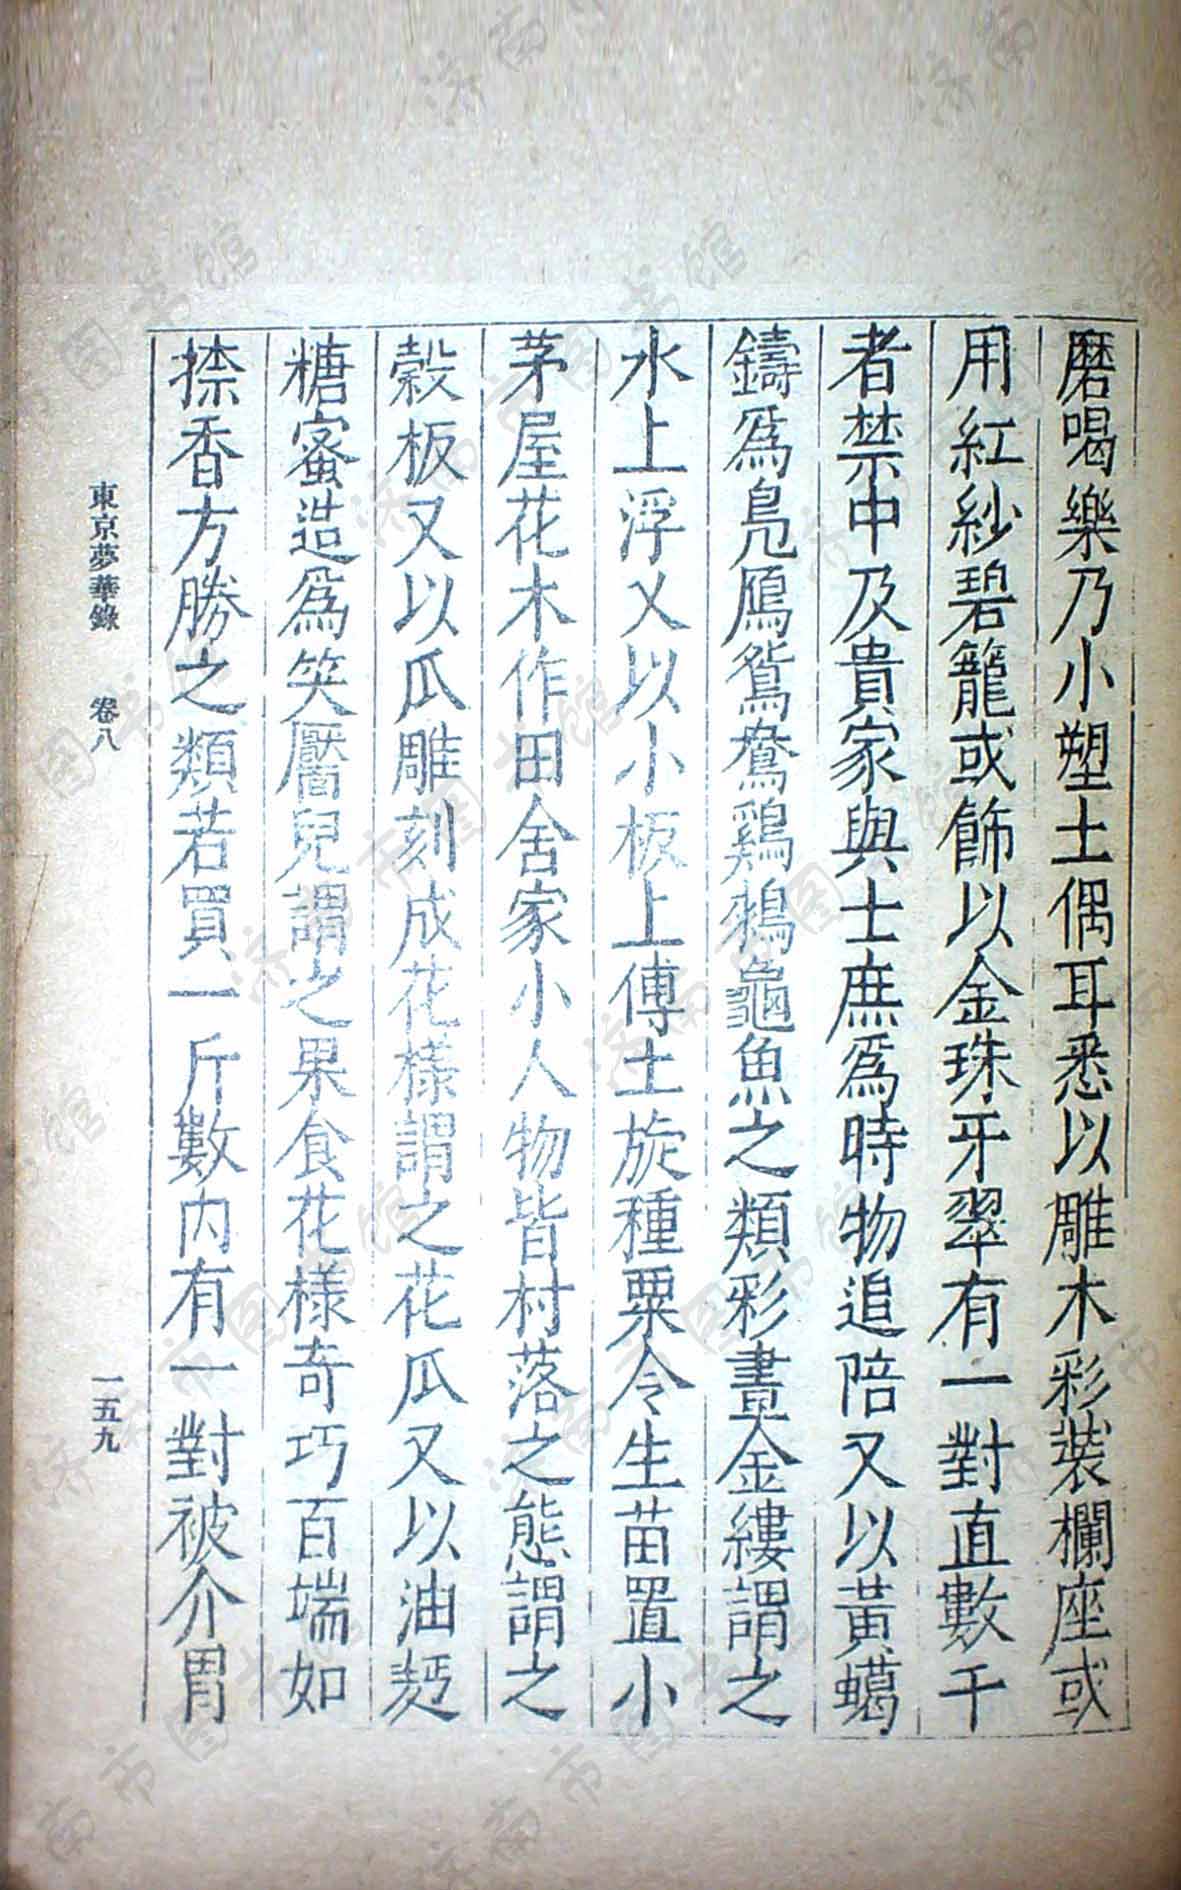 磨喝樂乃小塑土偶耳悉以雕木彩裝欄座或
用紅紗碧籠或飾以金珠牙翠有一對直數千
者禁中及貴家與士庶爲時物追陪又以黃蠟
鑄爲鳧鴈鴛鴦鸂鶒龜魚之類彩畫金縷謂之
水上浮又以小板上傅土旋種粟令生苗置小
茅屋花木作田舍家小人物皆村落之態謂之
穀板又以瓜雕刻成花樣謂之花瓜又以油麪
糖蜜造爲笑靨兒謂之果食花樣奇巧百端如
捺香方勝之類若買一斤數內有一對被介冑
東京夢華錄 卷八 一五九
济南市图书馆